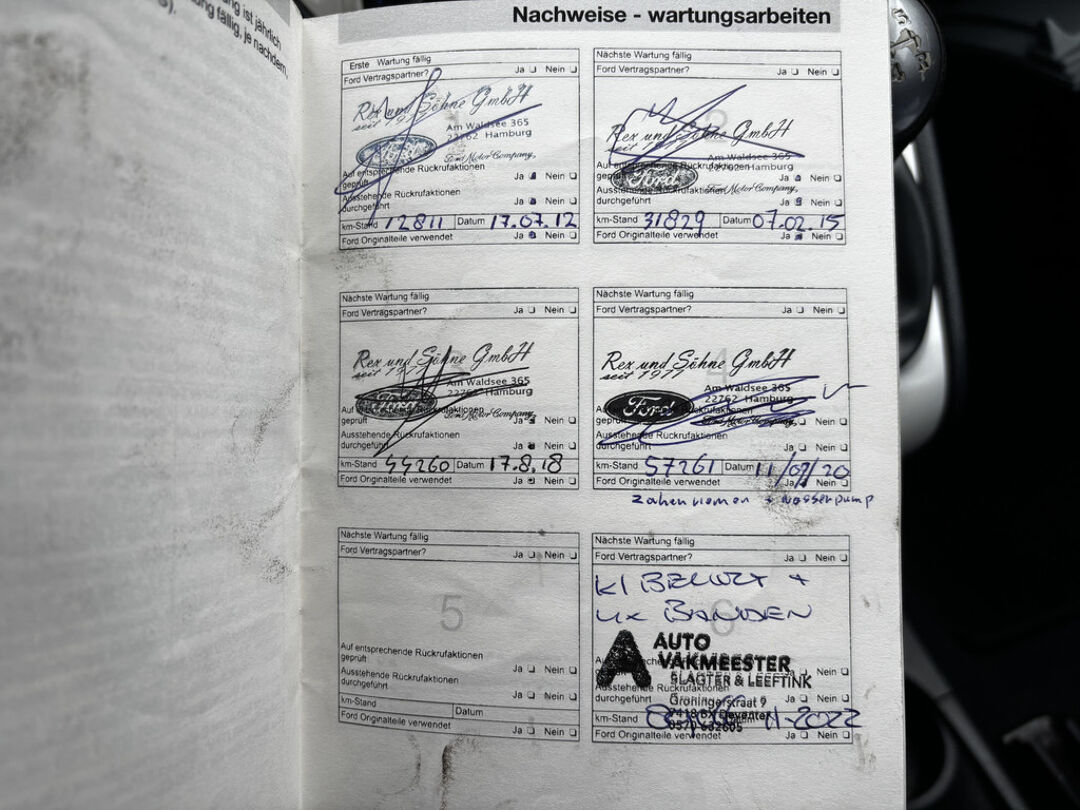 ung ist jährlich
ng fällig, je nachdem,
Nachweise - wartungsarbeiten
Erste Wartung fällig
Ford Vertragspartner? Ja Nein
Rex und Söhne GmbH
seit 1977
Am Waldsee 365
22762 Hamburg
Ford Motor Company,
Auf entsprechende Rückrufaktionen
geprüft Ja Nein
Ausstehende Rückrufaktionen
durchgeführt Ja Nein
km-Stand 12811 Datum 17.07.12
Ford Originalteile verwendet Ja Nein
Nächste Wartung fällig
Ford Vertragspartner? Ja Nein
2
Rex und Söhne GmbH
Am Waldsee 365
22762 Hamburg
Ford
Ford Motor Company,
Auf entsprechende Rückrufaktionen
geprüft Ja Nein
Ausstehende Rückrufaktionen
durchgeführt Ja Nein
km-Stand 31829 Datum 07.02.15
Ford Originalteile verwendet Ja Nein
Nächste Wartung fällig
Ford Vertragspartner? Ja Nein
Rex und Söhne GmbH
seit 1977
Am Waldsee 365
22762 Hamburg
Ford
Ford Motor Company,
Auf entsprechende Rückrufaktionen
geprüft Ja Nein
Ausstehende Rückrufaktionen
durchgeführt Ja Nein
km-Stand 44260 Datum 17.8.18
Ford Originalteile verwendet Ja Nein
Nächste Wartung fällig
Ford Vertragspartner? Ja Nein
4
Rex und Söhne GmbH
seit 1977
Am Waldsee 365
22762 Hamburg
Ford
Ford Motor Company,
Auf entsprechende Rückrufaktionen
geprüft Ja Nein
Ausstehende Rückrufaktionen
durchgeführt Ja Nein
km-Stand 57261 Datum 11/07/20
Ford Originalteile verwendet Ja Nein
Zahenriemen + wasserpump
Nächste Wartung fällig
Ford Vertragspartner? Ja Nein
5
Auf entsprechende Rückrufaktionen
geprüft Ja Nein
Ausstehende Rückrufaktionen
durchgeführt Ja Nein
km-Stand Datum
Ford Originalteile verwendet Ja Nein
Nächste Wartung fällig
Ford Vertragspartner? Ja Nein
Kl BEURT +
4x BANDEN
6
A AUTO
VAKMEESTER
SLAGTER & LEEFTINK
Ja Nein
Ausstehende Rückrufaktionen
durchgeführt Ja Nein
Groningerstraat 9
Deventer
km-Stand 11-2022
Ford Originalteile verwendet Ja Nein